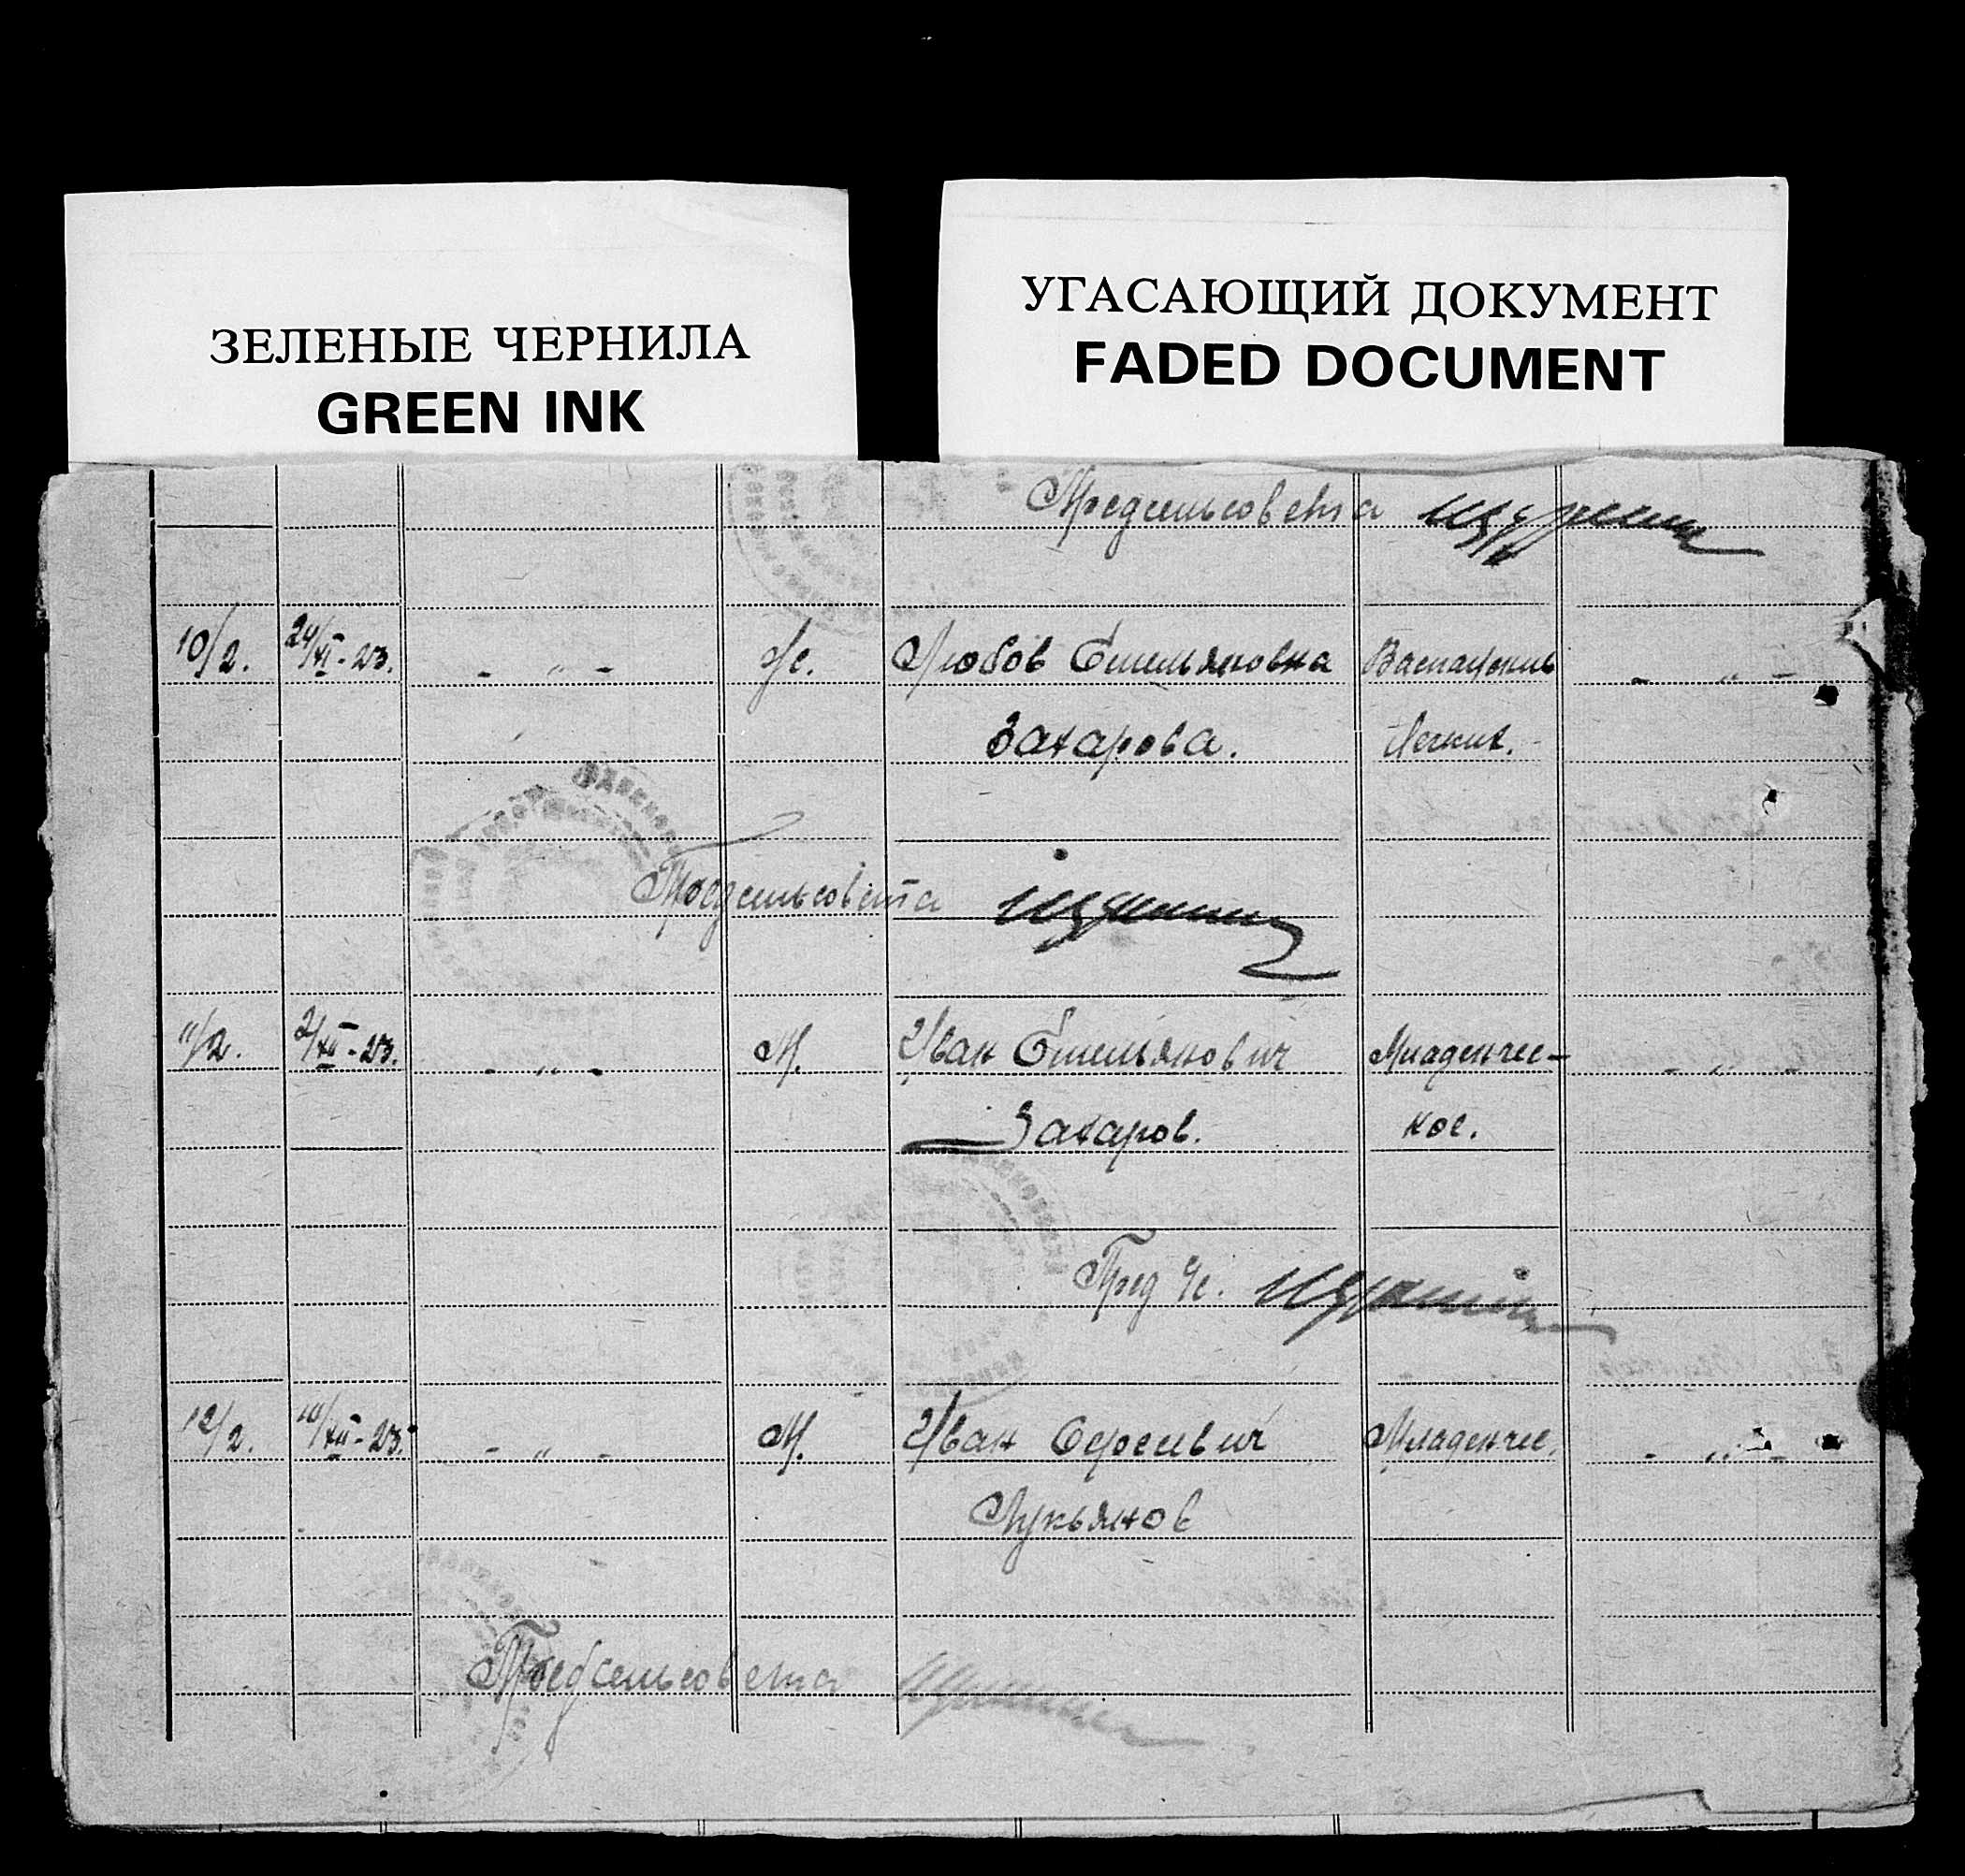 ЗЕЛЕНЫЕ ЧЕРНИЛА
GREEN INK
УГАСАЮЩИЙ ДОКУМЕНТ
FADED DOCUMENT
Предсельсовета
10/2. 24/XI - 23. - „ - Ж. Любов Емельяновна
Захарова. Легких.
Предсельсовета
11/2. 2/XII - 23. - „ - М. Иван Емельянович Младенчес-
Захаров. кое.
Пред Ч.
12/2. 10/XII - 23. - „ - М. Иван Сергеевич Младенчес. - „ -
Лукьянов
Предсельсовета